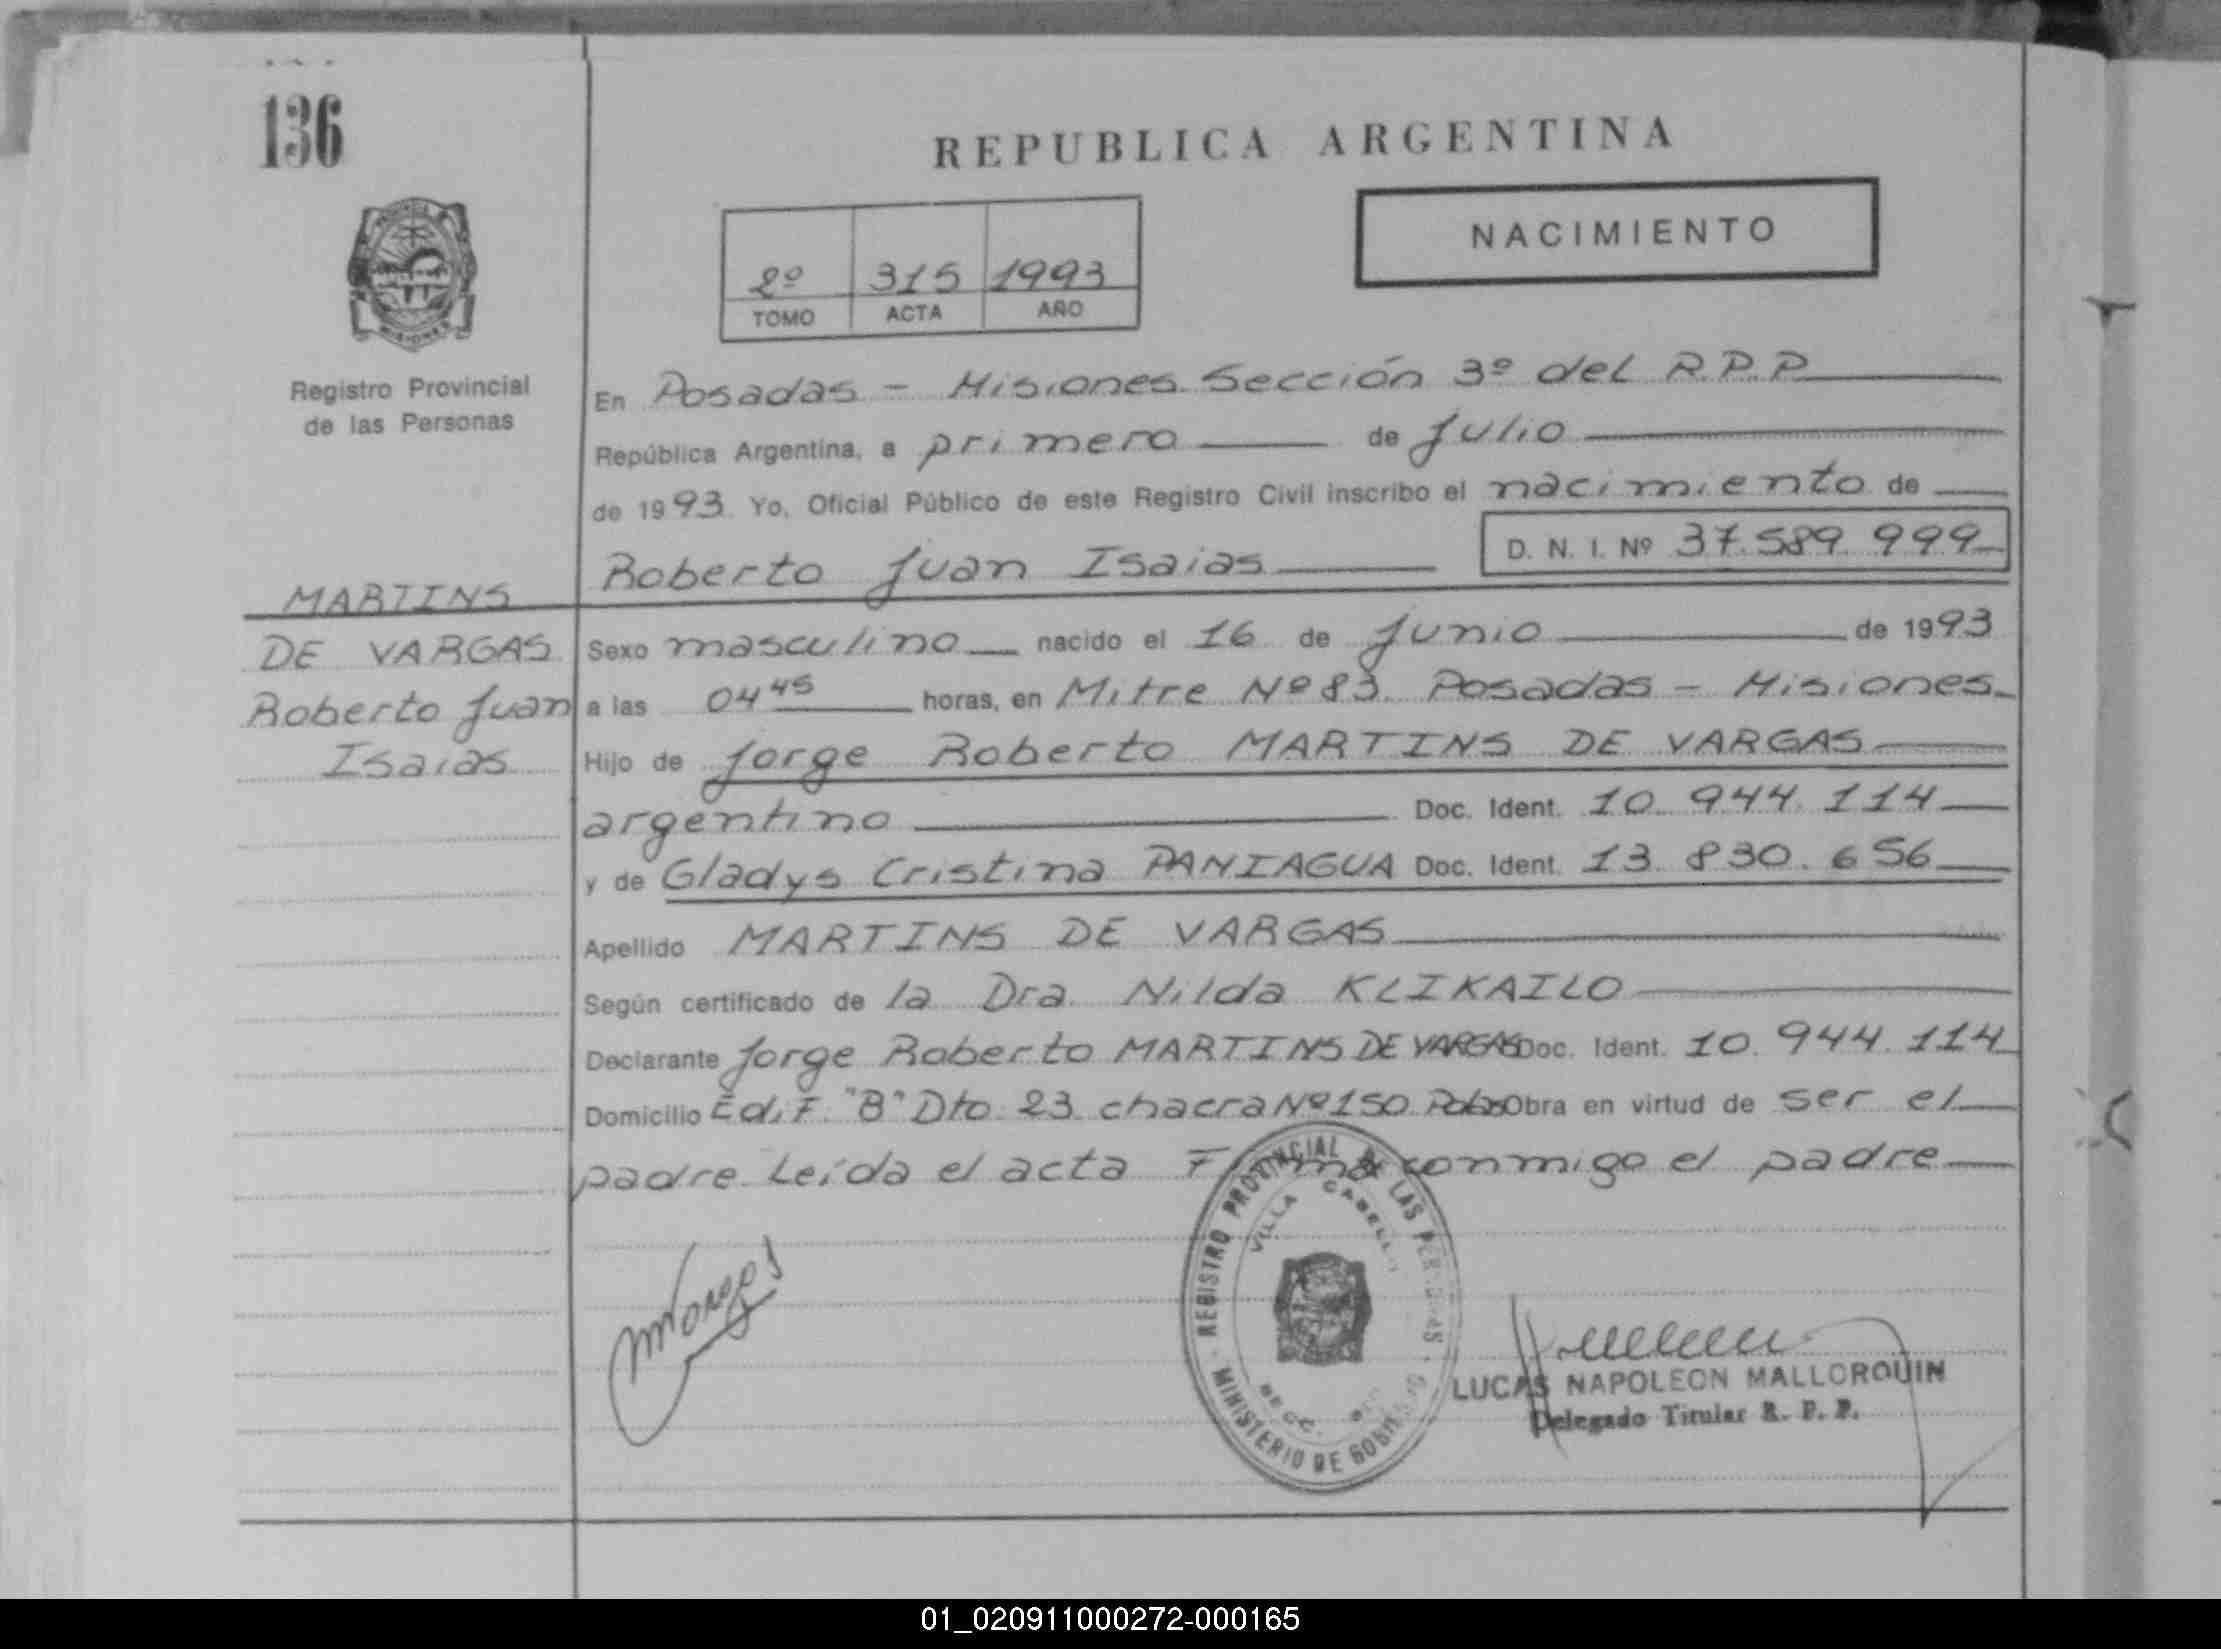 136
REPUBLICA ARGENTINA
NACIMIENTO
2º 315 1993
TOMO ACTA AÑO
Registro Provincial
de las Personas
En Posadas - Misiones Sección 3º del R.P.P
República Argentina, a primero de Julio
de 1993. Yo, Oficial Público de este Registro Civil inscribo el nacimiento de
Roberto Juan Isaias D. N. I. Nº 37.589.999
MARTINS
DE VARGAS
Roberto Juan
Isaias
Sexo masculino nacido el 16 de Junio de 1993
a las 04 45 horas, en Mitre Nº 83. Posadas - Misiones
Hijo de Jorge Roberto MARTINS DE VARGAS
argentino Doc. Ident. 10.944.114
y de Gladys Cristina PANIAGUA Doc. Ident. 13.830.656
Apellido MARTINS DE VARGAS
Según certificado de la Dra. Nilda KLIKAILO
Declarante Jorge Roberto MARTINS DE VARGAS Doc. Ident. 10.944.114
Domicilio Edif. "B" Dto. 23 chacra Nº 150 Obra en virtud de ser el
padre. Leída el acta Firma conmigo el padre
REGISTRO PROVINCIAL DE LAS PERSONAS
VILLA CABELLO
MINISTERIO DE GOBIERNO
LUCAS NAPOLEON MALLORQUIN
Delegado Titular R. P. P.
01_020911000272-000165